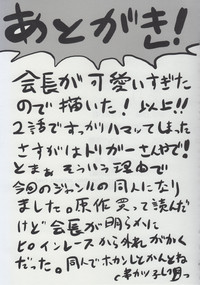 あとがき!
会長が可愛いすぎた
ので描いた!以上!!
2話ですっかりハマってしまった
さすがはトリガーさんやで!
とまぁそういう理由で
今回のジャンルの同人になり
ました。原作買って読んだ
けど会長が明らかに
ヒロインレースから外れがかく
だった。同人でホカンしとかんとね